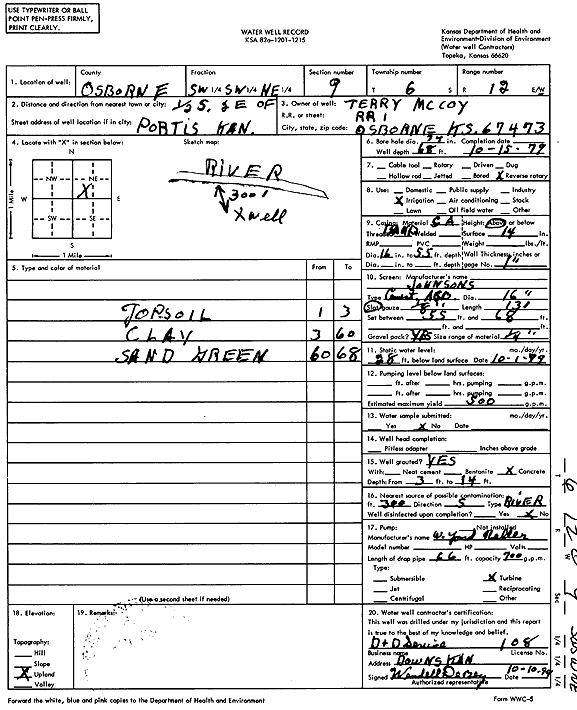 USE TYPEWRITER OR BALL
POINT PEN-PRESS FIRMLY,
PRINT CLEARLY.
WATER WELL RECORD
KSA 82a-1201-1215
Kansas Department of Health and
Environment-Division of Environment
(Water well Contractors)
Topeka, Kansas 66620
1. Location of well: County OSBORNE Fraction SW 1/4 SW 1/4 NE 1/4 Section number 9 Township number T 6 S Range number R 12 E/W
2. Distance and direction from nearest town or city: ½ S. ½ E OF
Street address of well location if in city: PORTIS KAN.
3. Owner of well: TERRY MCCOY
R.R. or street: RR 1
City, state, zip code: OSBORNE KS. 67473
4. Locate with "X" in section below:
Sketch map:
N
NW NE
X
W E
SW SE
S
1 Mile
1 Mile
RIVER
300'
X well
6. Bore hole dia. in. Completion date
Well depth 68 ft. 10-15-79
7. Cable tool Rotary Driven Dug
Hollow rod Jetted Bored X Reverse rotary
8. Use: Domestic Public supply Industry
X Irrigation Air conditioning Stock
Lawn Oil field water Other
9. Casing: Material Height: Above or below
Threaded Welded Surface 14 in.
RMP PVC Weight lbs./ft.
Dia. 16 in. to 55 ft. depth Wall Thickness: inches or
Dia. in. to ft. depth gage No. 1"
5. Type and color of material From To
TOPSOIL 1 3
CLAY 3 60
SAND GREEN 60 68
10. Screen: Manufacturer's name
JOHNSONS
Type Dia. 16"
Slot/gauze Length 13'
Set between 55 ft. and 68 ft.
ft. and ft.
Gravel pack? YES Size range of material
11. Static water level: mo./day/yr.
28 ft. below land surface Date 10-1-79
12. Pumping level below land surfaces:
ft. after hrs. pumping g.p.m.
ft. after hrs. pumping g.p.m.
Estimated maximum yield 500 g.p.m.
13. Water sample submitted: mo./day/yr.
Yes X No Date
14. Well head completion:
Pitless adapter Inches above grade
15. Well grouted? YES
With: Neat cement Bentonite X Concrete
Depth: From 3 ft. to 14 ft.
16. Nearest source of possible contamination:
ft. 300 Direction S Type RIVER
Well disinfected upon completion? Yes X No
17. Pump: Not installed
Manufacturer's name
Model number HP Volts
Length of drop pipe 66 ft. capacity 700 g.p.m.
Type:
Submersible X Turbine
Jet Reciprocating
Centrifugal Other
(Use a second sheet if needed)
18. Elevation:
Topography:
Hill
Slope
X Upland
Valley
19. Remarks:
20. Water well contractor's certification:
This well was drilled under my jurisdiction and this report
is true to the best of my knowledge and belief.
D+D Service 108
Business name License No.
Address DOWNS KAN
Signed Date 10-10-79
Authorized representative
Forward the white, blue and pink copies to the Department of Health and Environment
Form WWC-5